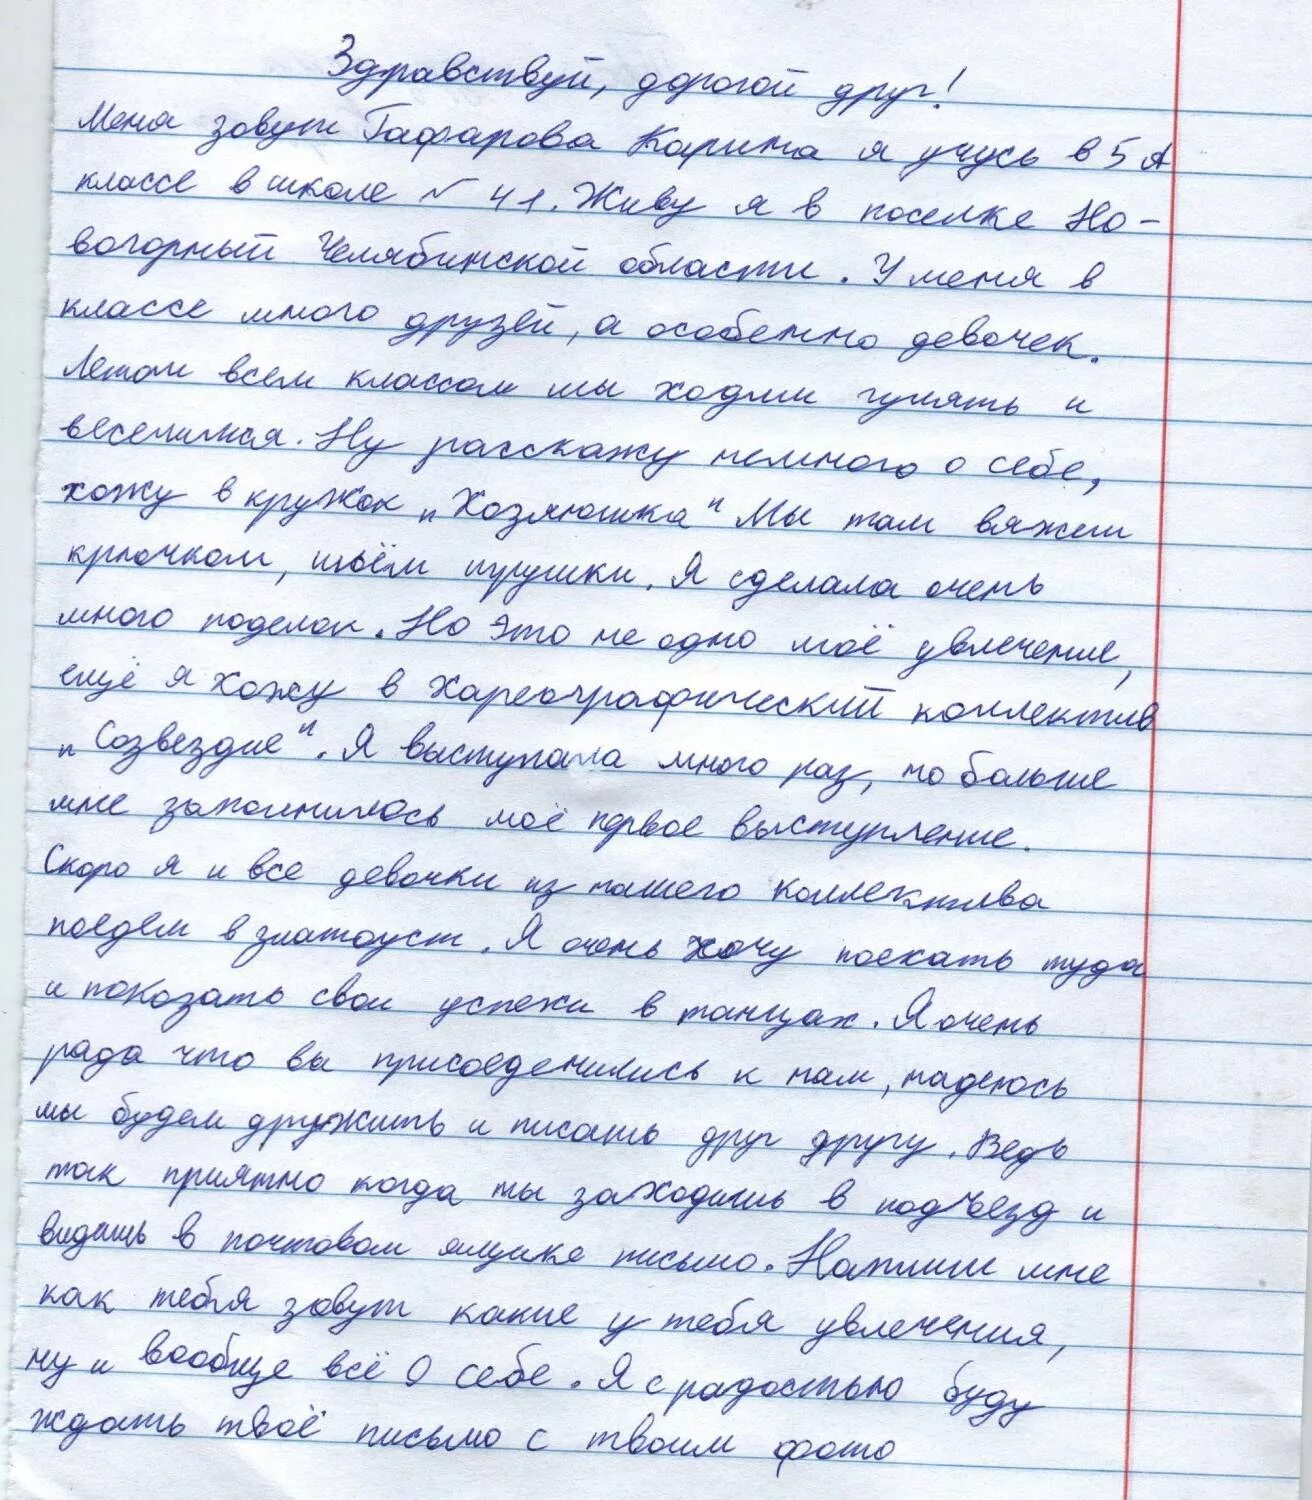 Здравствуй, дорогой друг!
Меня зовут Гафарова Карина я учусь в 5 А
классе в школе № 41. Живу я в поселке Но-
вогорный Челябинской области. У меня в
классе много друзей, а особенно девочек.
Летом всем классом мы ходим гулять и
веселимся. Ну расскажу немного о себе,
хожу в кружок „Хозяюшка" Мы там вяжем
крючком, шьём игрушки. Я сделала очень
много поделок. Но это не одно моё увлечение,
ещё я хожу в хареографический коллектив
„Созвездие". Я выступала много раз, но больше
мне запомнилось моё первое выступление.
Скоро я и все девочки из нашего коллектива
поедем в златоуст. Я очень хочу поехать туда
и показать свои успехи в танцах. Я очень
рада что вы присоеденились к нам, надеюсь
мы будем дружить и писать друг другу. Ведь
так приятно когда ты заходишь в подъезд и
видишь в почтовом ящике письмо. Напиши мне
как тебя зовут какие у тебя увлечения,
ну и вообще всё о себе. Я с радостью буду
ждать твоё письмо с твоим фото